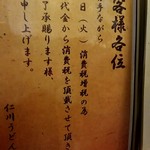 客様各位
手ながら
日(火)消費税増税の為
代金から消費税を頂戴させて頂き
了承賜ります様、
申し上げます。
仁川うどん